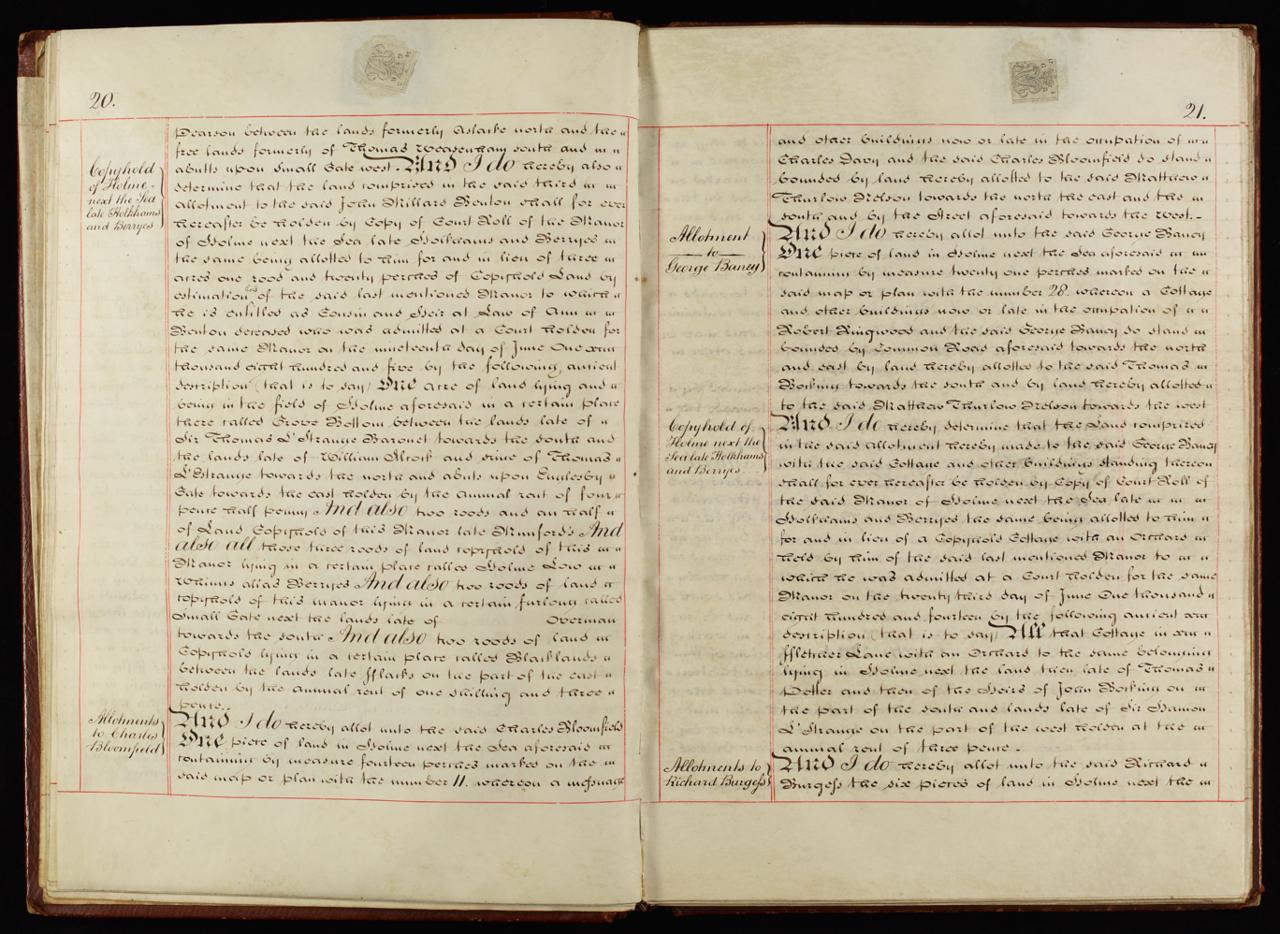 20.
Copyhold
of Holme
next the Sea
late Holkhams
and Berryes
Pearson between the lands formerly Aslacke north and the
free lands formerly of Thomas Weasenham south and
abutts upon Small Gate west. And I do hereby also
determine that the land comprised in the said third
allotment to the said John Millard Benton shall for ever
hereafter be holden by Copy of Court Roll of the Manor
of Holme next the Sea late Holkhams and Berryes
the same being allotted to him for and in lieu of three
acres one rood and twenty perches of Copyhold Land by
estimation of the said last mentioned Manor to which
he is entitled as Cousin and Heir at Law of Ann
Benton deceased who was admitted at a Court holden for
the same Manor on the nineteenth day of June One
thousand eight hundred and five by the following ancient
description (that is to say) One acre of land lying and
being in the field of Holme aforesaid in a certain place
there called Grove Bottom between the lands late of
Sir Thomas L'Strange Baronet towards the south and
the lands late of William and since of Thomas
L'Strange towards the north and abuts upon Englesby
Gate towards the east holden by the annual rent of four
pence half penny And also two roods and an half
of Land Copyhold of this Manor late Mumford's And
also all those three roods of land copyhold of this
Manor lying in a certain place called Holme Low
alias Berryes And also two roods of land
copyhold of this manor lying in a certain furlong called
Small Gate next the lands late of Overman
towards the south And also two roods of land
Copyhold lying in a certain place called Blacklands
between the lands late on the part of the east
holden by the annual rent of one shilling and three
pence.
Allotments
to Charles
Bloomfield
And I do hereby allot unto the said Charles Bloomfield
One piece of land in Holme next the Sea aforesaid
containing by measure fourteen perches marked on the
said map or plan with the number 11. whereon a messuage
21.
and other buildings now or late in the occupation of
Charles Davy and the said Charles Bloomfield do stand
bounded by land hereby allotted to the said Matthew
Thurlow Nelson towards the north the east and the
south and by the Street aforesaid towards the west.
Allotment
to
George Bancy
And I do hereby allot unto the said George Bancy
One piece of land in Holme next the Sea aforesaid
containing by measure twenty one perches marked on the
said map or plan with the number 28. whereon a Cottage
and other buildings now or late in the occupation of
Robert Ringwood and the said George Bancy do stand
bounded by Common Road aforesaid towards the north
and east by land hereby allotted to the said Thomas
Bocking towards the south and by land hereby allotted
to the said Matthew Thurlow Nelson towards the west
Copyhold of
Holme next the
Sea late Holkhams
and Berryes
And I do hereby determine that the Land comprised
in the said allotment hereby made to the said George Bancy
with the said Cottage and other buildings standing thereon
shall for ever hereafter be holden by Copy of Court Roll of
the said Manor of Holme next the Sea late
Holkhams and Berryes the same being allotted to him
for and in lieu of a Copyhold Cottage with an Orchard
held by him of the said last mentioned Manor to
which he was admitted at a Court holden for the same
Manor on the twenty third day of June One thousand
eight hundred and fourteen by the following ancient
description (that is to say) All that Cottage in
ffletcher Lane with an Orchard to the same belonging
lying in Holme next the land then late of Thomas
Potter and then of the Heirs of John Bocking on
the part of the south and lands late of Sir Hamon
L'Strange on the part of the west holden at the
annual rent of three pence.
Allotments to
Richard Burgess
And I do hereby allot unto the said Richard
Burgess the six pieces of land in Holme next the